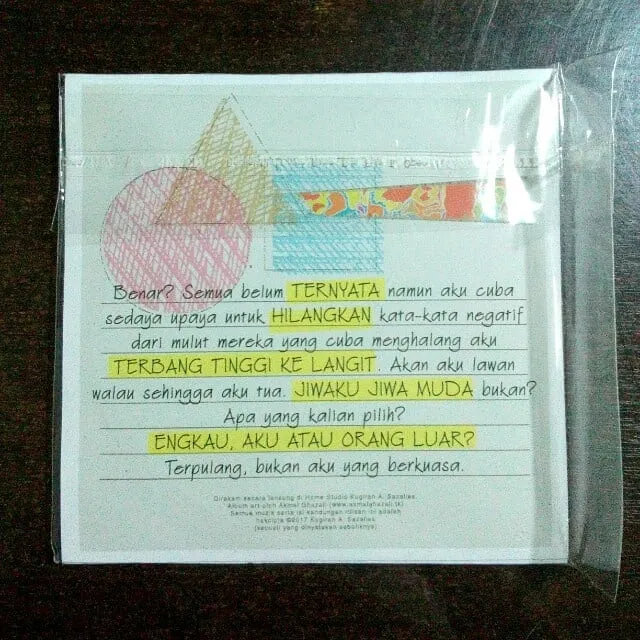 Benar? Semua belum TERNYATA namun aku cuba
sedaya upaya untuk HILANGKAN kata-kata negatif
dari mulut mereka yang cuba menghalang aku
TERBANG TINGGI KE LANGIT. Akan aku lawan
walau sehingga aku tua. JIWAKU JIWA MUDA bukan?
Apa yang kalian pilih?
ENGKAU, AKU ATAU ORANG LUAR?
Terpulang, bukan aku yang berkuasa.
Dirakam secara langsung di Home Studio Kugiran A. Sazalies.
Album art oleh Akmal Ghazali (www.akmalghazali.tk)
Semua muzik serta isi kandungan rilisan ini adalah
hakcipta ©2017 Kugiran A. Sazalies.
(kecuali yang dinyatakan sebaliknya)